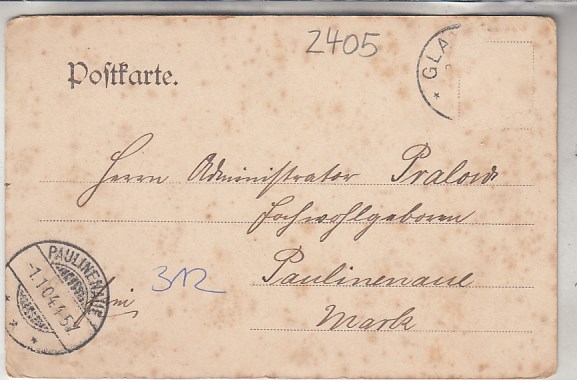 2405
Postkarte.
GLA
Herrn Administrator Pralow
Hochwohlgeboren
PAULINENAUE
-1.1.04.4-5N
312
Paulinenaue
Mark